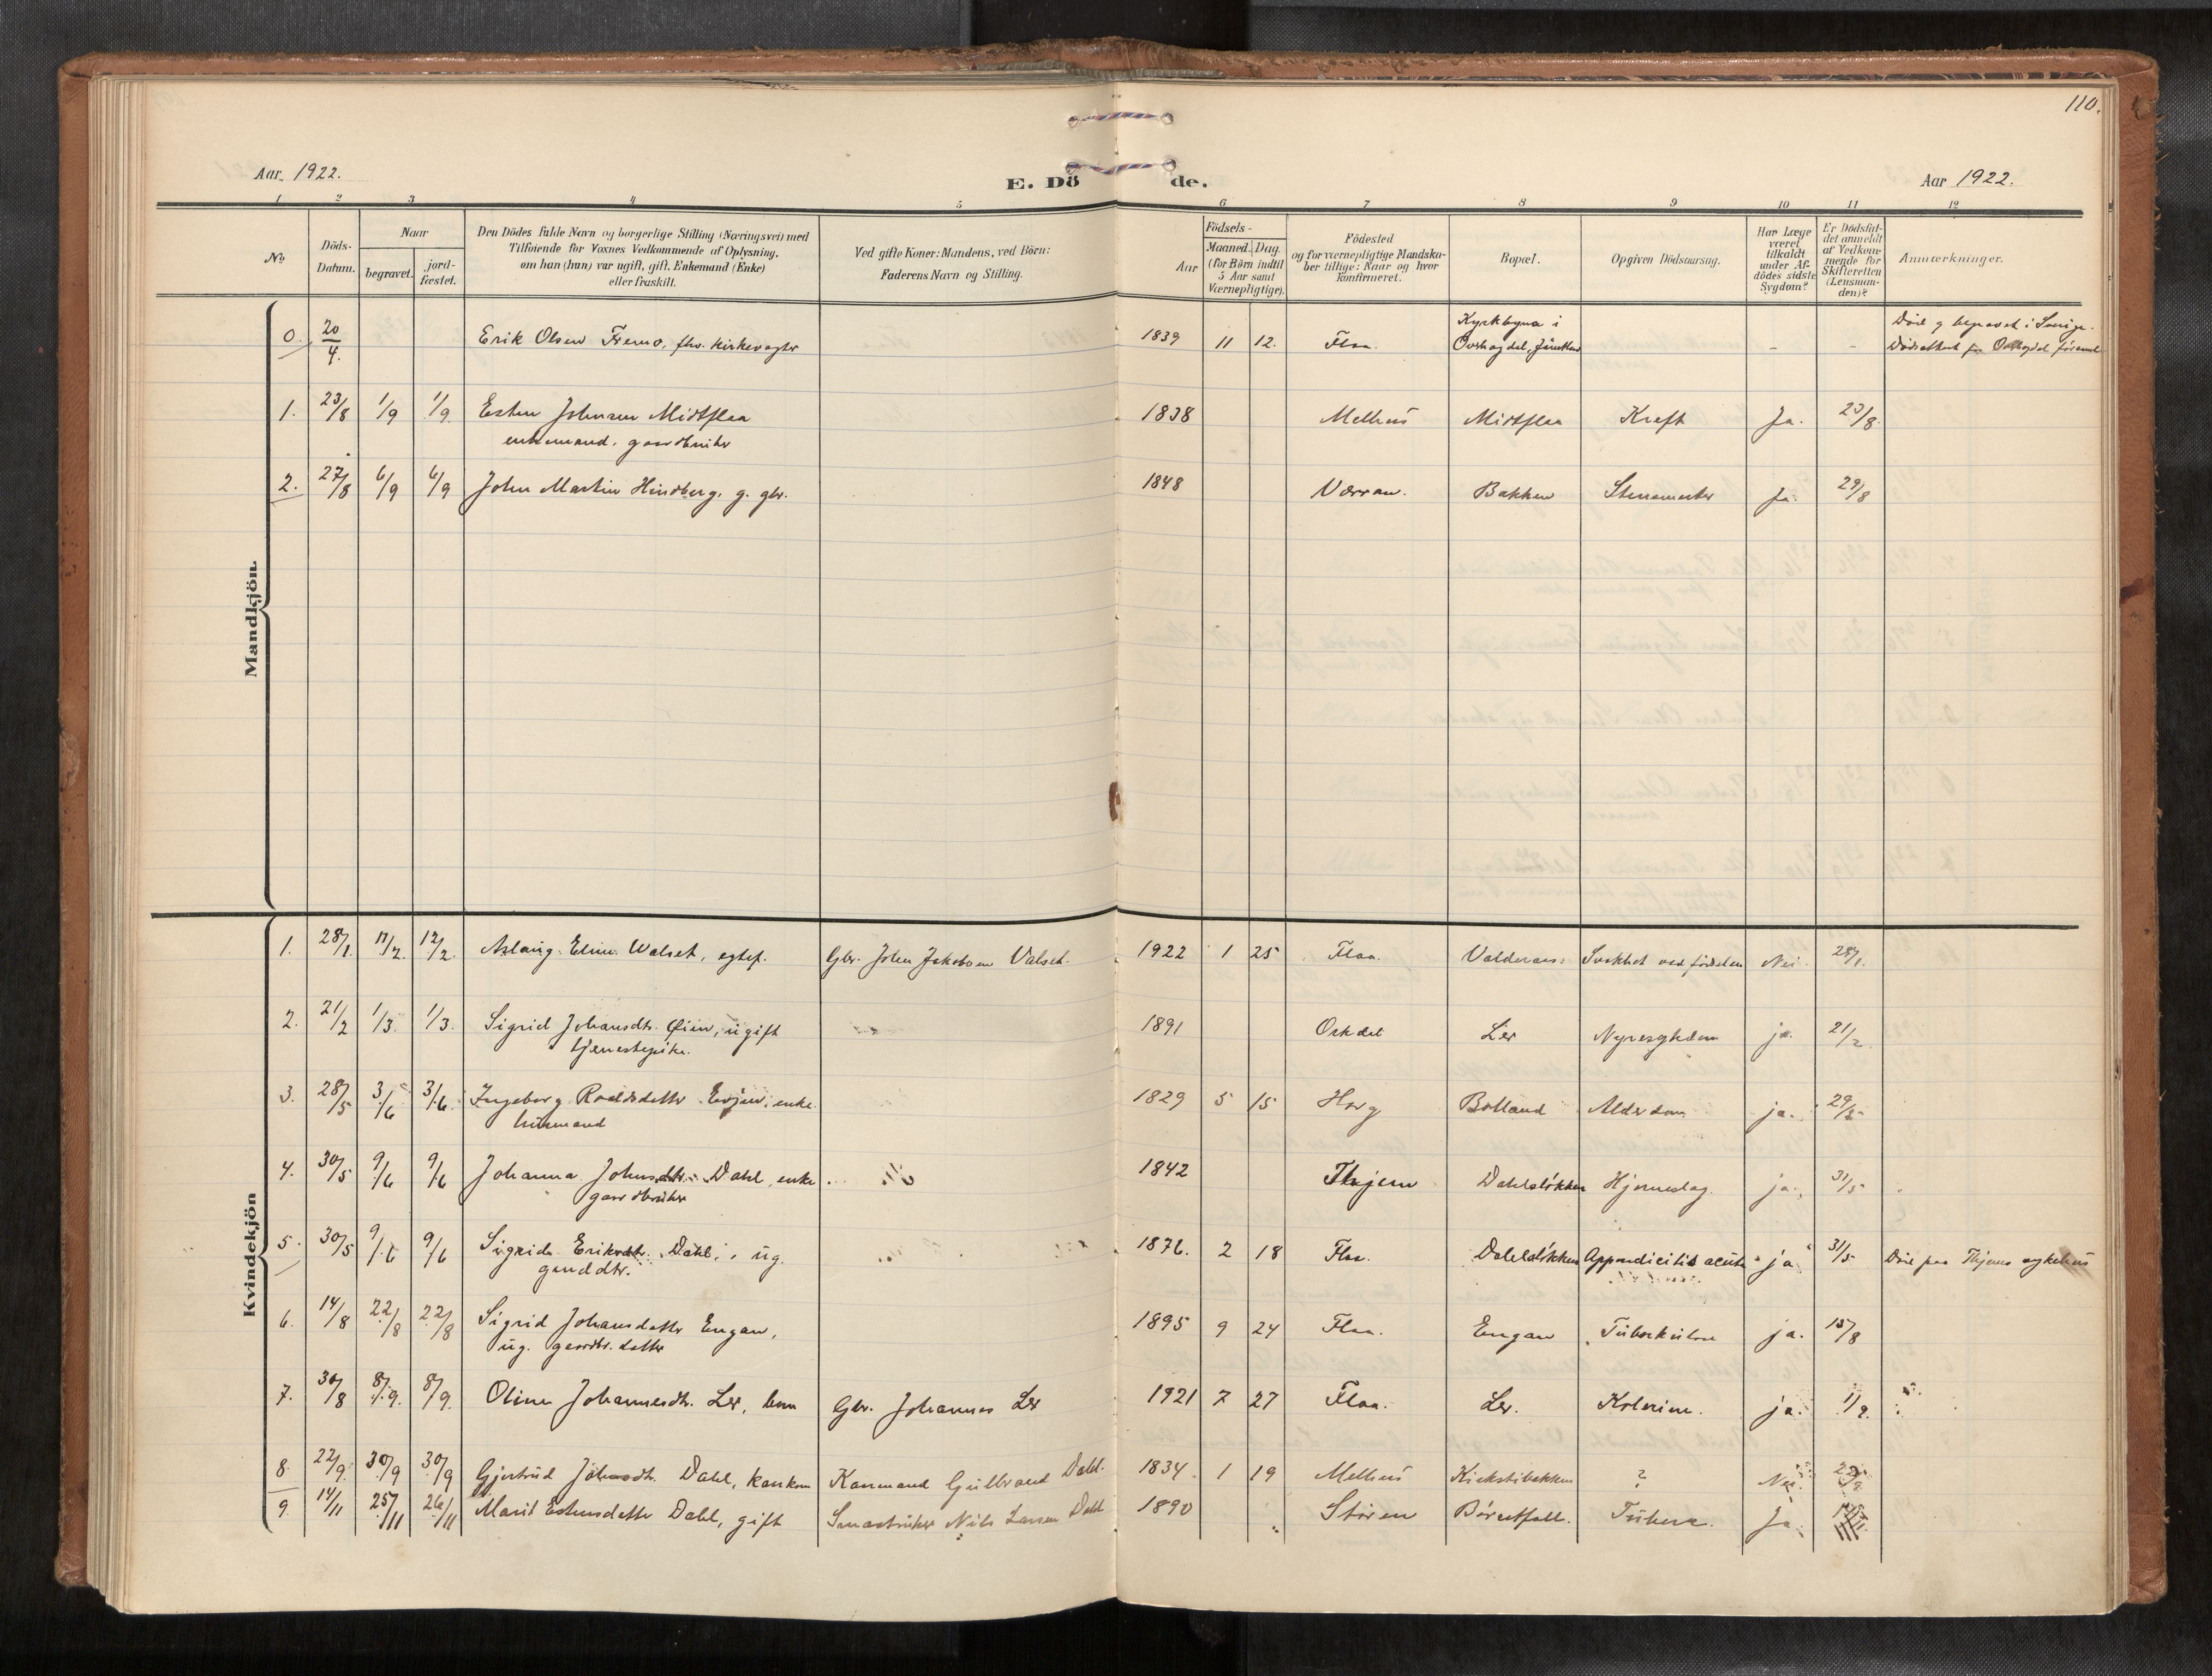 110.
Aar 1922.
E. Dö de.
Aar 1922.
1 2 3 4 5 6 7 8 9 10 11 12
No
Döds-Datum.
Naar
begravet.
jord-fæstet.
Den Dödes fulde Navn og borgerlige Stilling (Næringsvei) med
Tilföiende for Voxnes Vedkommende af Oplysning,
om han (hun) var ugift, gift, Enkemand (Enke)
eller fraskilt.
Ved gifte Koner: Mandens, ved Börn:
Faderens Navn og Stilling.
Födsels-
Aar
Maaned.
Dag.
(for Börn indtil
5 Aar samt
Værnepligtige).
Födested
og for værnepligtige Mandska-
ber tillige: Naar og hvor
konfirmeret.
Bopæl.
Opgiven Dödsaarsag.
Har Læge
været
tilkaldt
under Af-
dödes sidste
Sygdom?
Er Dödsfal-
det anmeldt
af Vedkom-
mende for
Skifteretten
(Lensman-
den)?
Anmærkninger.
Mandkjön.
0. 20/4. Erik Olsen Fremo, fhv. kirkevogter 1839 11 12. Flaa. Kyrkbyna i - - Död og begravet i Sverige.
Overhogdal, Dödsattest
1. 23/8 1/9 1/9 Esten Johnsen Midtflaa 1838 Melhus Midtflaa Kreft Ja. 23/8
enkemand, gaardbruker
2. 27/8 6/9 6/9 John Martin Hindberg, g. gbr. 1848 Værran. Bakken Ja. 29/8
Kvindekjön
1. 28/1. 12/2. 12/2. Aslaug Eline Walset, egtef. Gbr. John Jakobsen Valset. 1922 1 25 Flaa. Valderaas: Svakhet ved fødselen Nei. 28/1.
2. 21/2 1/3. 1/3. Sigrid Johansdtr. Øien, ugift 1891 Orkdal Ler Nyresykdom ja. 21/2
tjenestepike.
3. 28/5 3/6 3/6. Ingeborg Roaldsdatter Evjen, enke 1829 5 15 Horg Bolland Alderdom ja. 29/5
husmand
4. 30/5 9/6 9/6 Johanna Johnsdtr. Dahl, enke 1842 Dahlsløkken Hjerneslag. ja. 31/5
gaardbruker
5. 30/5 9/6 9/6 Sigrid Eriksdtr. Dahl, ug. 1876. 2 18 Flaa. Dahlsløkken Appendicitis acuta ja 31/5 Död paa sykehus
gaarddtr.
6. 14/8 22/8 22/8 Sigrid Johansdatter Engan, 1895 9 24 Flaa. Engan Tuberkulose ja. 15/8
ug. gaardbr. datter
7. 30/8 8/9. 8/9. Oline Johannesdtr. Ler, barn Gbr. Johannes Ler 1921 7 27 Flaa. Ler. Kolerine. ja. 1/9.
8. 22/9. 30/9 30/9 Gjertrud Johnsdtr. Dahl, Gulbrand Dahl. 1834 1 19 Melhus ? Nei.
9. 14/11 25/11 26/11 Marit Estensdatter Dahl, gift Nils Larsen Dahl 1890 Støren Børsetfall. Ja.